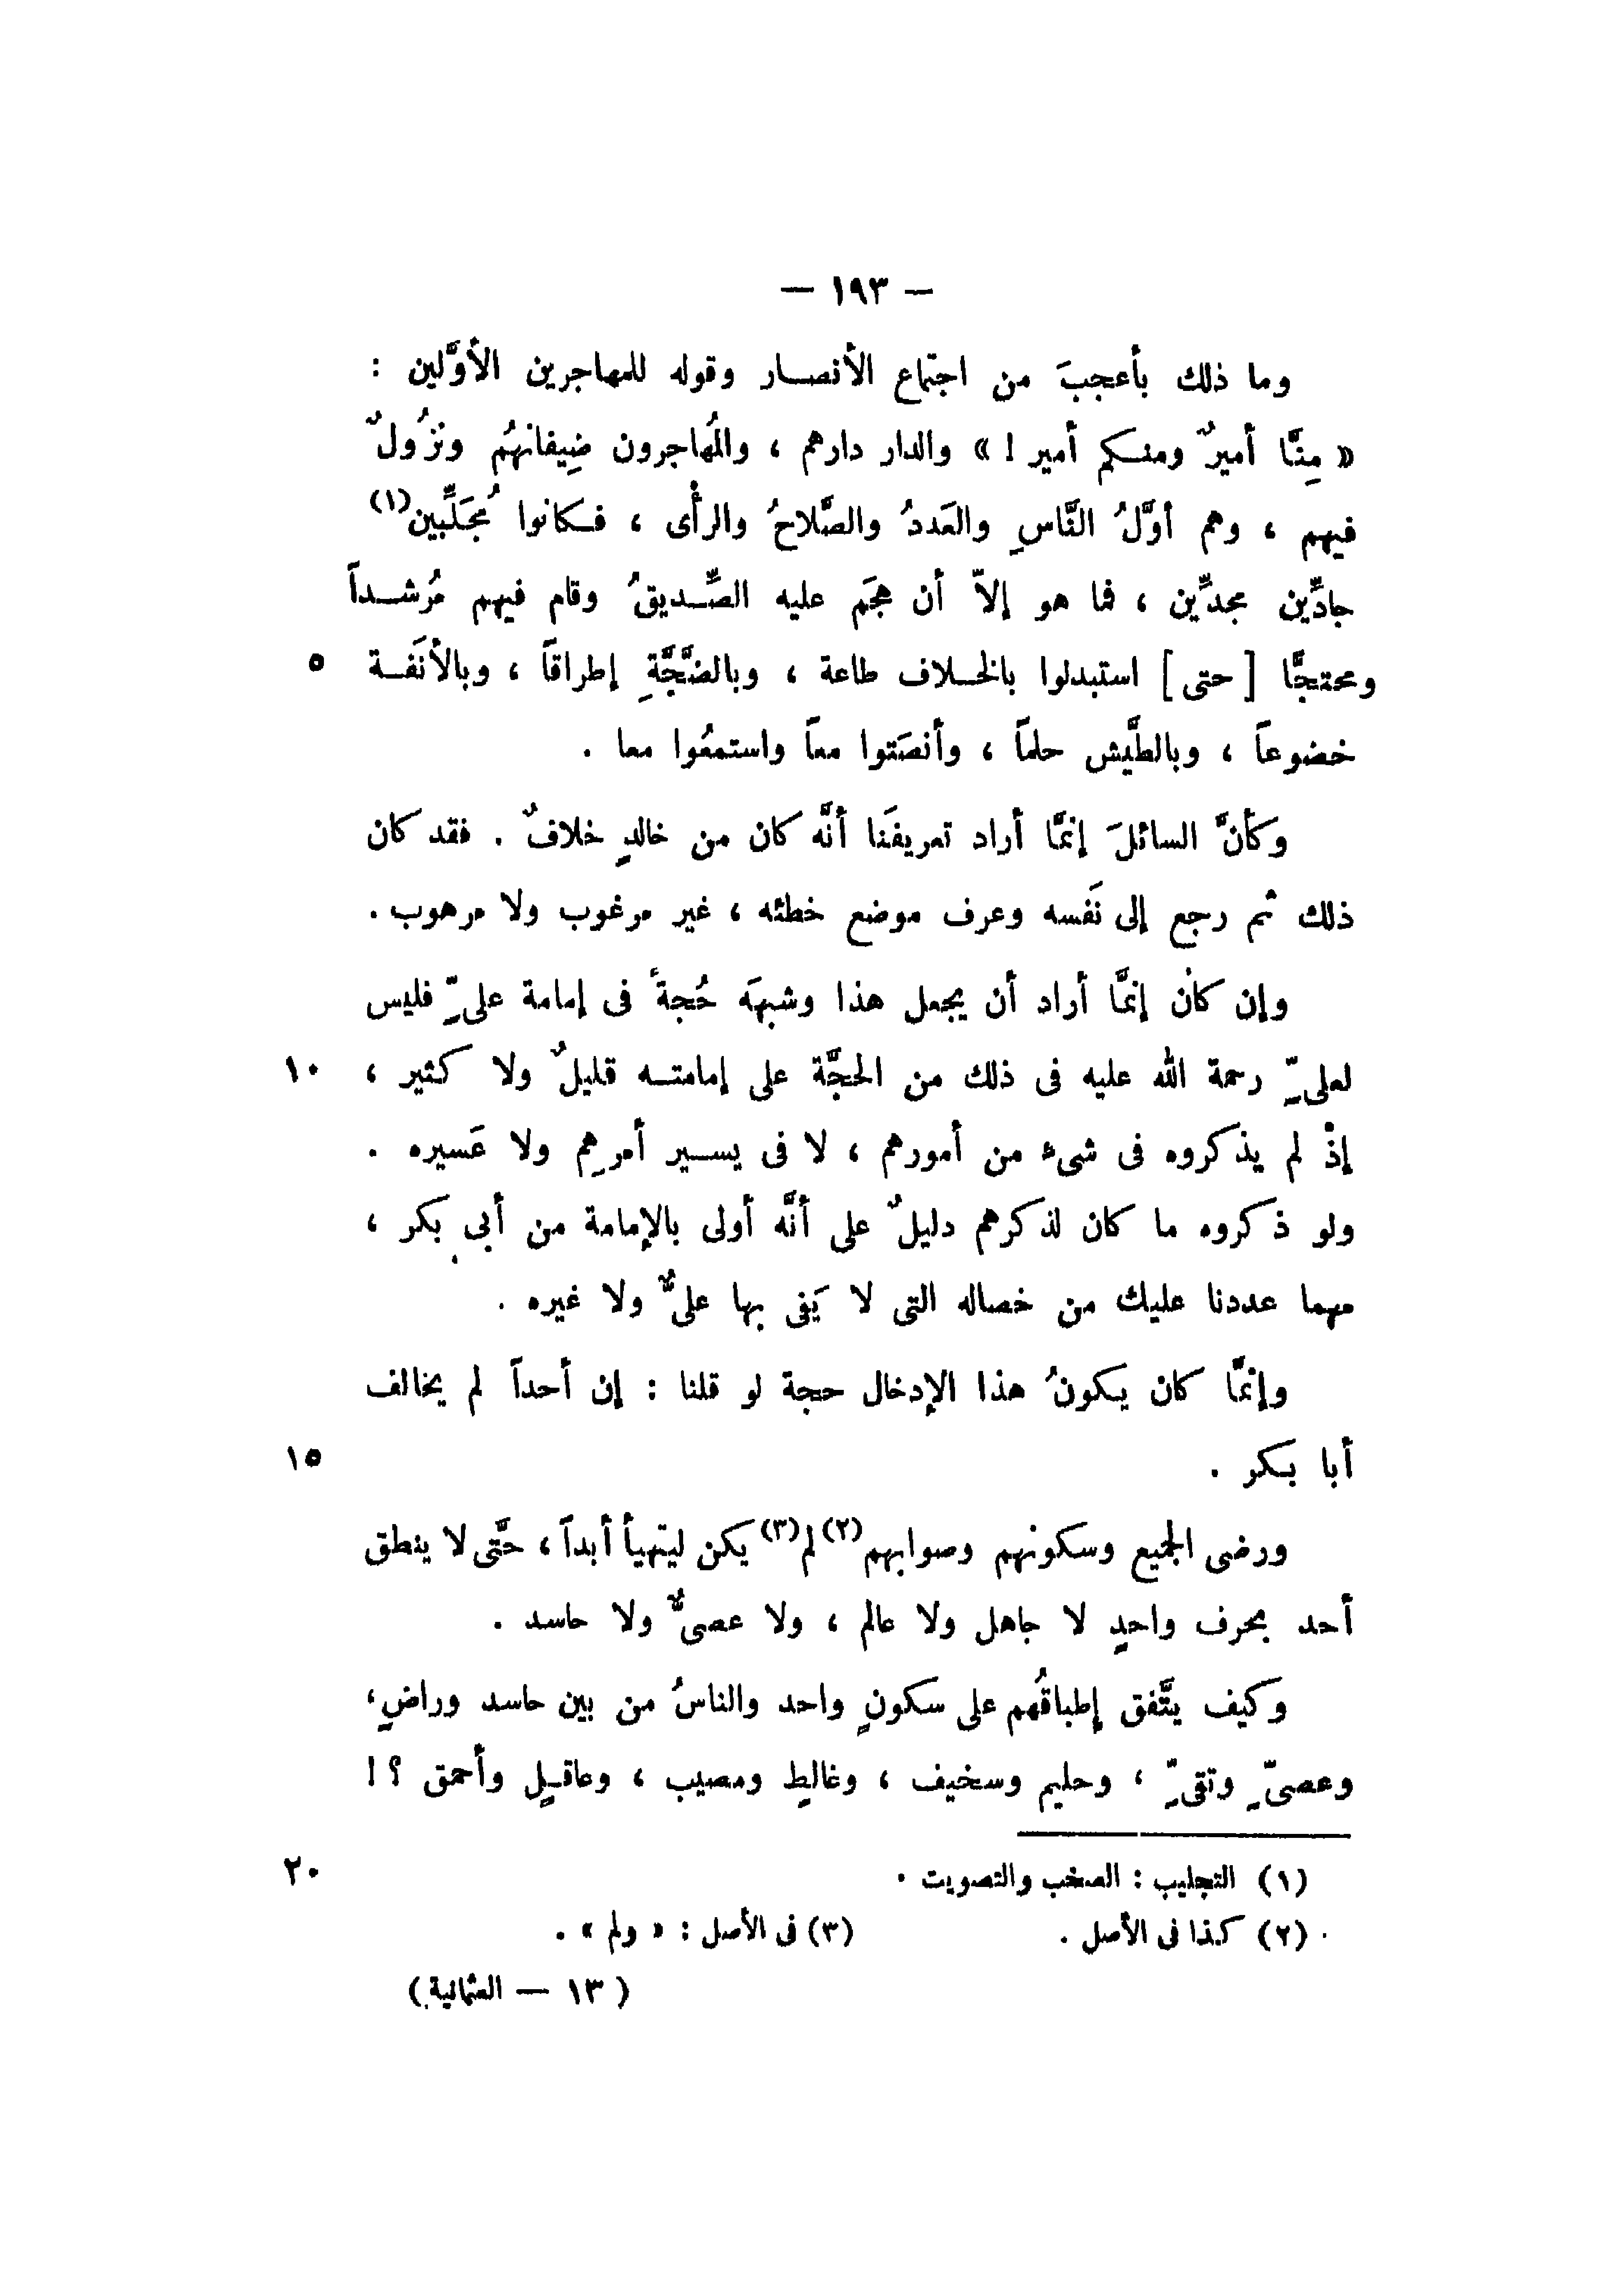 — ١٩٣ —
وما ذلك بأعجبَ من اجتماع الأنصار وقوله للمهاجرين الأوَّلين :
« مِنَّا أميرٌ ومنكم أمير ! » والدار دارهم ، والمُهاجرون ضِيفانهُم ونزُولٌ
فيهم ، وهم أوَّلُ النَّاسِ والعَددُ والصَّلاحُ والرأْى ، فكانوا مُجَلِّبين(١)
جادِّين مجدِّين ، فما هو إلاّ أن هجَم عليه الصِّديقُ وقام فيهم مُرشداً
ومحتجًّا [ حتى ] استبدلوا بالخلاف طاعة ، وبالضَّجَّةِ إطراقاً ، وبالأنَفة ٥
خضوعاً ، وبالطَّيش حلماً ، وأنصَتوا معاً واستمعُوا معا .
وكأنَّ السائلَ إنمَّا أراد تعريفَنا أنَّه كان من خالدٍ خلافٌ . فقد كان
ذلك ثم رجع إلى نَفسه وعرف موضع خطئه ، غير مرغوب ولا مرهوب .
وإن كان إنمَّا أراد أن يجعل هذا وشبهَه حُجةً فى إمامة علىٍّ فليس
لعلىٍّ رحمة الله عليه فى ذلك من الحجَّة على إمامته قليلٌ ولا كثير ، ١٠
إذْ لم يذكروه فى شىء من أمورهم ، لا فى يسير أمرِهم ولا عَسيره .
ولو ذكروه ما كان لذكرهم دليلٌ على أنَّه أولى بالإمامة من أبى بكر ،
مهما عددنا عليك من خصاله التى لا يَفى بها علىٌّ ولا غيره .
وإنمَّا كان يكونُ هذا الإدخال حجة لو قلنا : إن أحداً لم يخالف
أبا بكر . ١٥
ورضى الجميع وسكونهم وصوابهم(٢) لم(٣) يكن ليتهيأ أبداً ، حتَّى لا ينطق
أحد بحرف واحدٍ لا جاهل ولا عالم ، ولا عصىٌّ ولا حاسد .
وكيف يتَّفق إطباقُهم على سكونٍ واحد والناسُ من بين حاسد وراضٍ ،
وعصىٍّ وتقىٍّ ، وحليم وسخيف ، وغالطٍ ومصيب ، وعاقلٍ وأحمق ؟ !
(١) التجليب : الصخب والتصويت . ٢٠
(٢) كذا فى الأصل . (٣) فى الأصل : « ولم » .
( ١٣ — العثمانية )